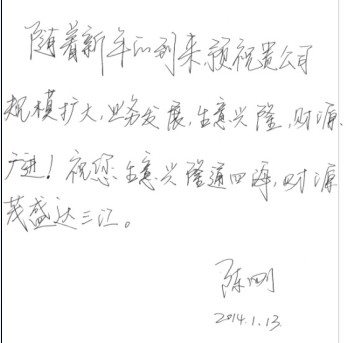 随着新年的到来,预祝贵公司
规模扩大,业务发展,生意兴隆,财源
广进!祝您生意兴隆通四海,财源
茂盛达三江。
陈刚
2014.1.13